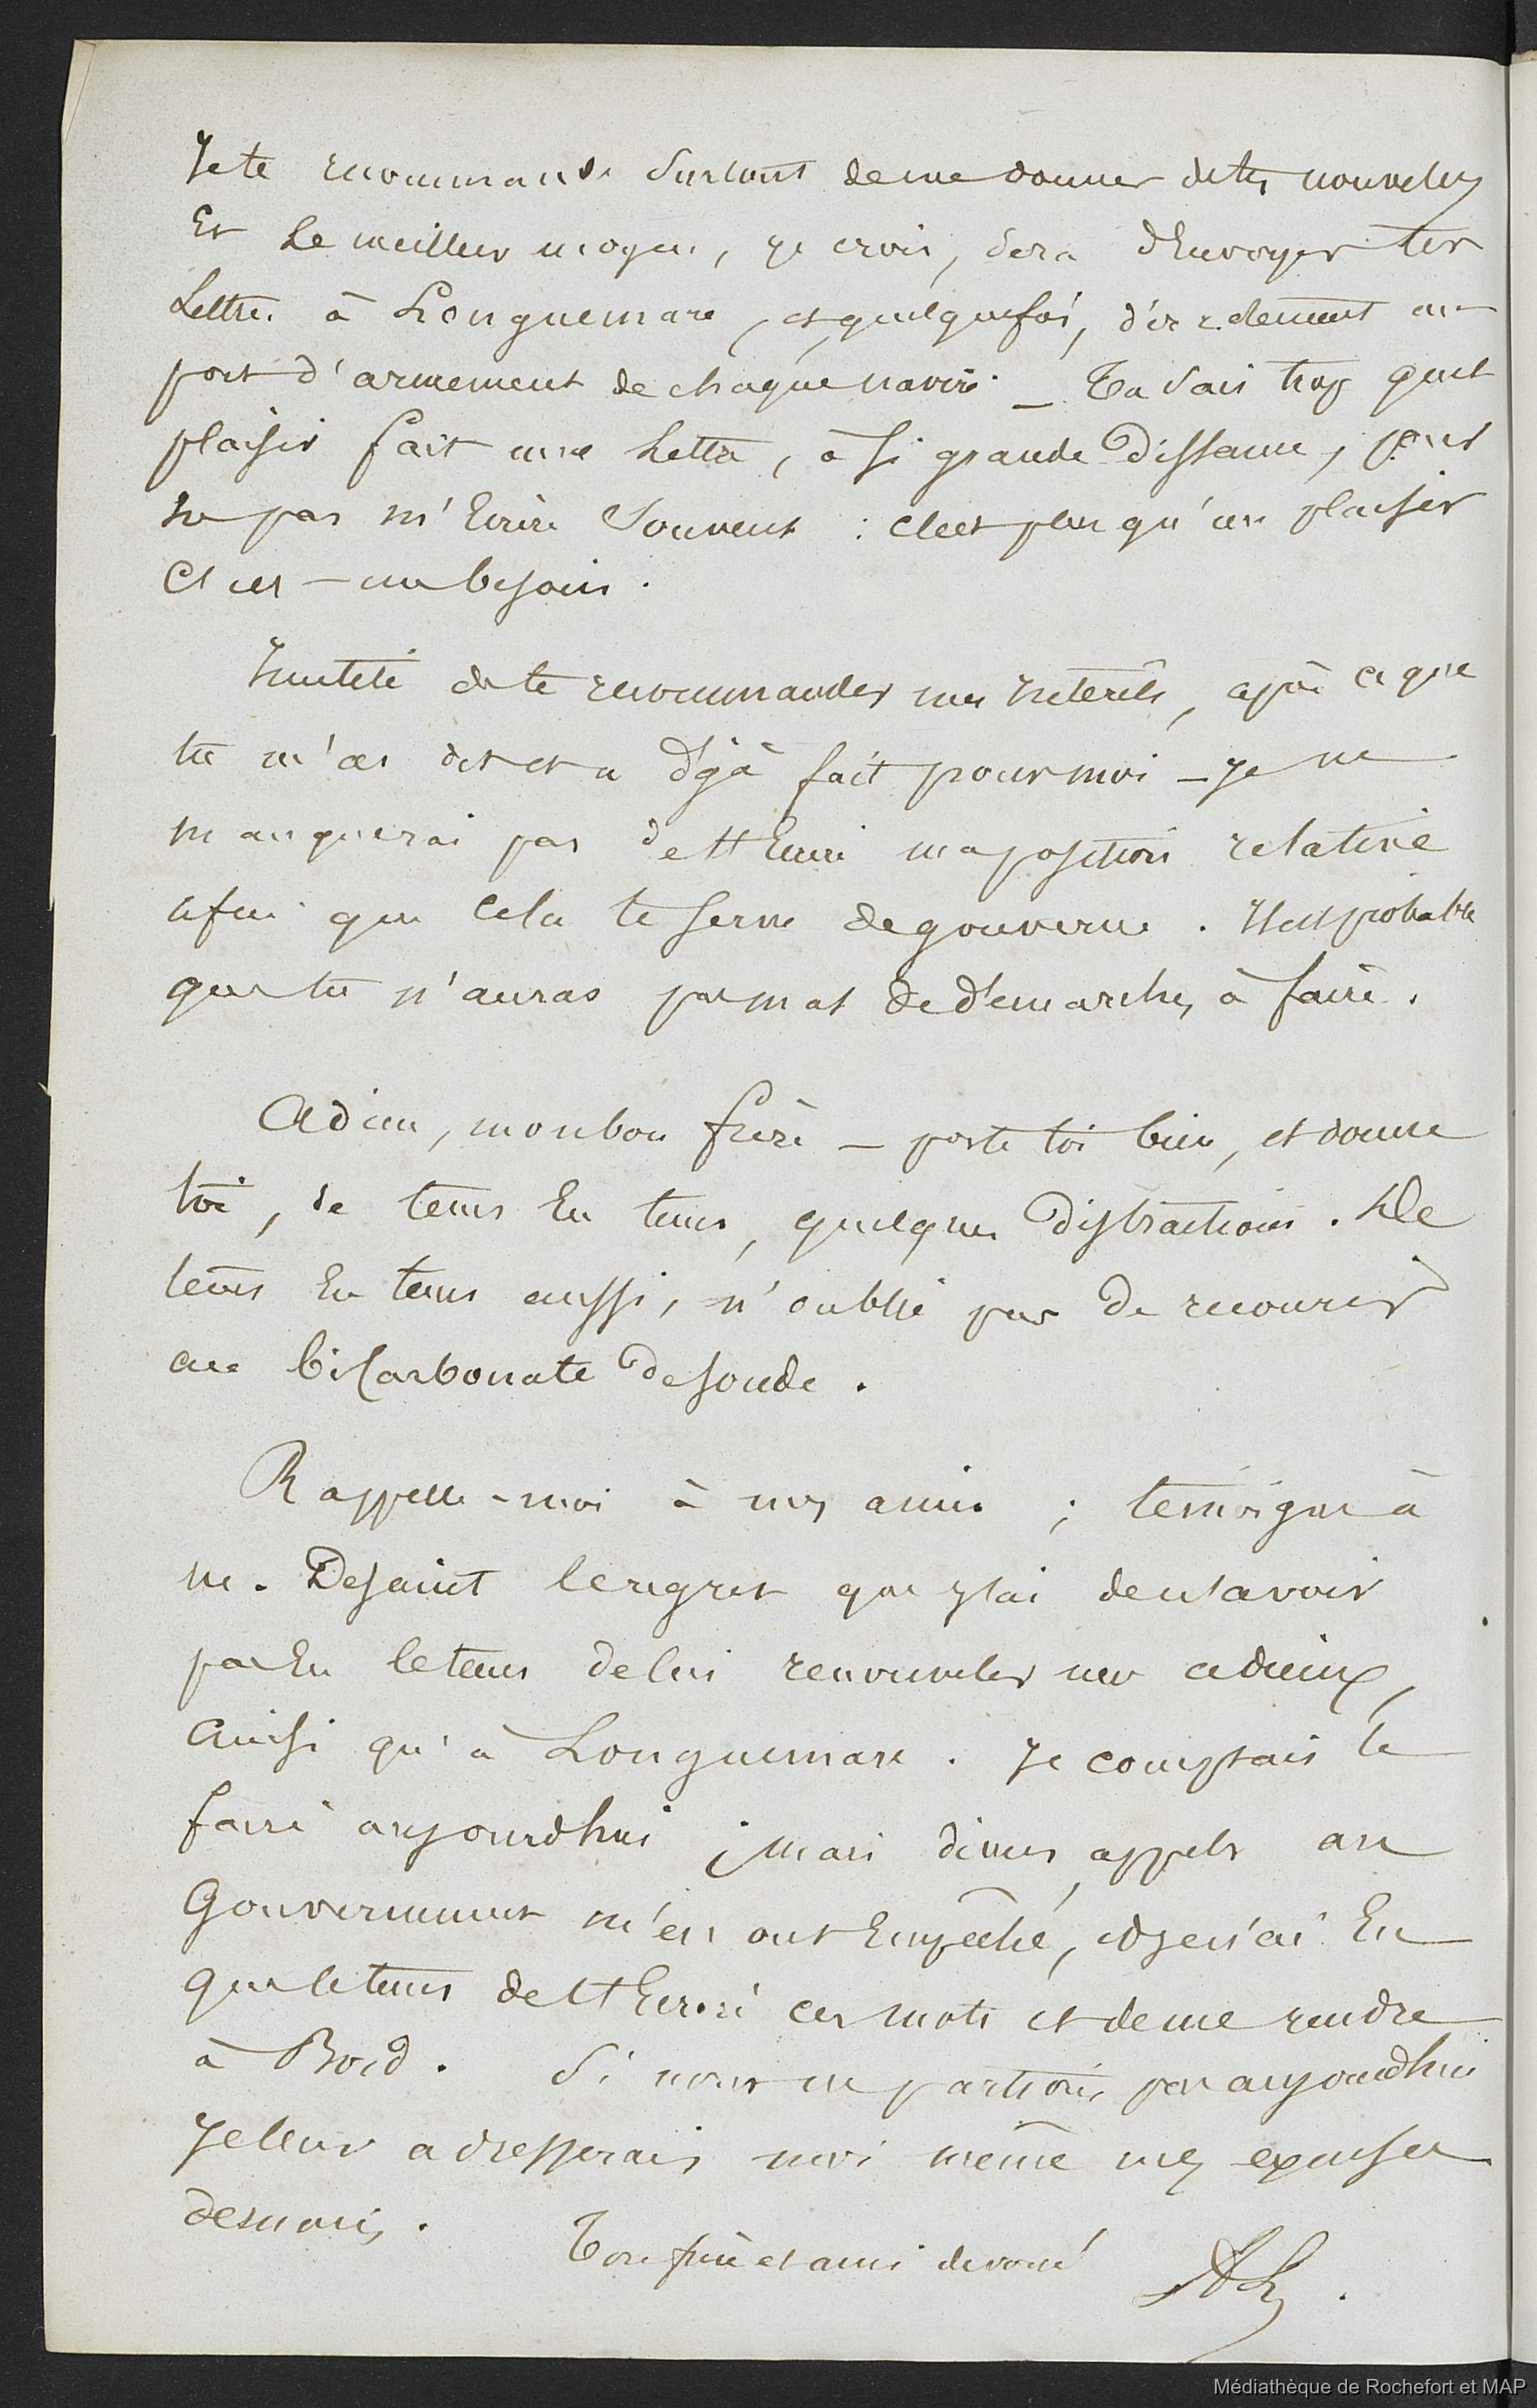 Je te recommande surtout de me donner de tes nouvelles
Et le meilleur moyen, je crois, sera d'Envoyer tes
Lettres à Longuemare, et quelquefois, directement au
port d'armement de chaque navire _ Tu sais trop quel
plaisir fait une lettre, à si grande distance, pour
ne pas m'Ecrire Souvent : c'est plus qu'un plaisir
C'est un besoin.
Inutile de te recommander mes Intérêts, après ce que
tu m'as dit et a déjà fait pour moi _ Je ne
manquerai pas de t'Ecrire ma position relative
afin que cela te serve de gouverne. Il est probable
que tu n'auras pas mal de démarches à faire.
Adieu, mon bon frère _ porte toi bien, et donne
toi, de tems En tems, quelques distractions. De
tems En tems aussi, n'oublie pas de recourir
au bicarbonate de soude.
Rappelle-moi à nos amis ; témoigne à
M. Desaint le regret que j'ai de n'avoir
pas Eu le tems de lui renouveler mes adieux,
Ainsi qu'à Longuemare. Je comptais le
faire aujourdhui ; mais divers appels au
Gouvernement m'en ont Empêché, et je n'ai Eu
que le tems de t'Ecrire ces mots et de me rendre
à Bord. Si nous ne partions pas aujourdhui
Je leur adresserais moi même mes excuses
demain.
Ton frère et ami dévoué
AL
Médiathèque de Rochefort et MAP